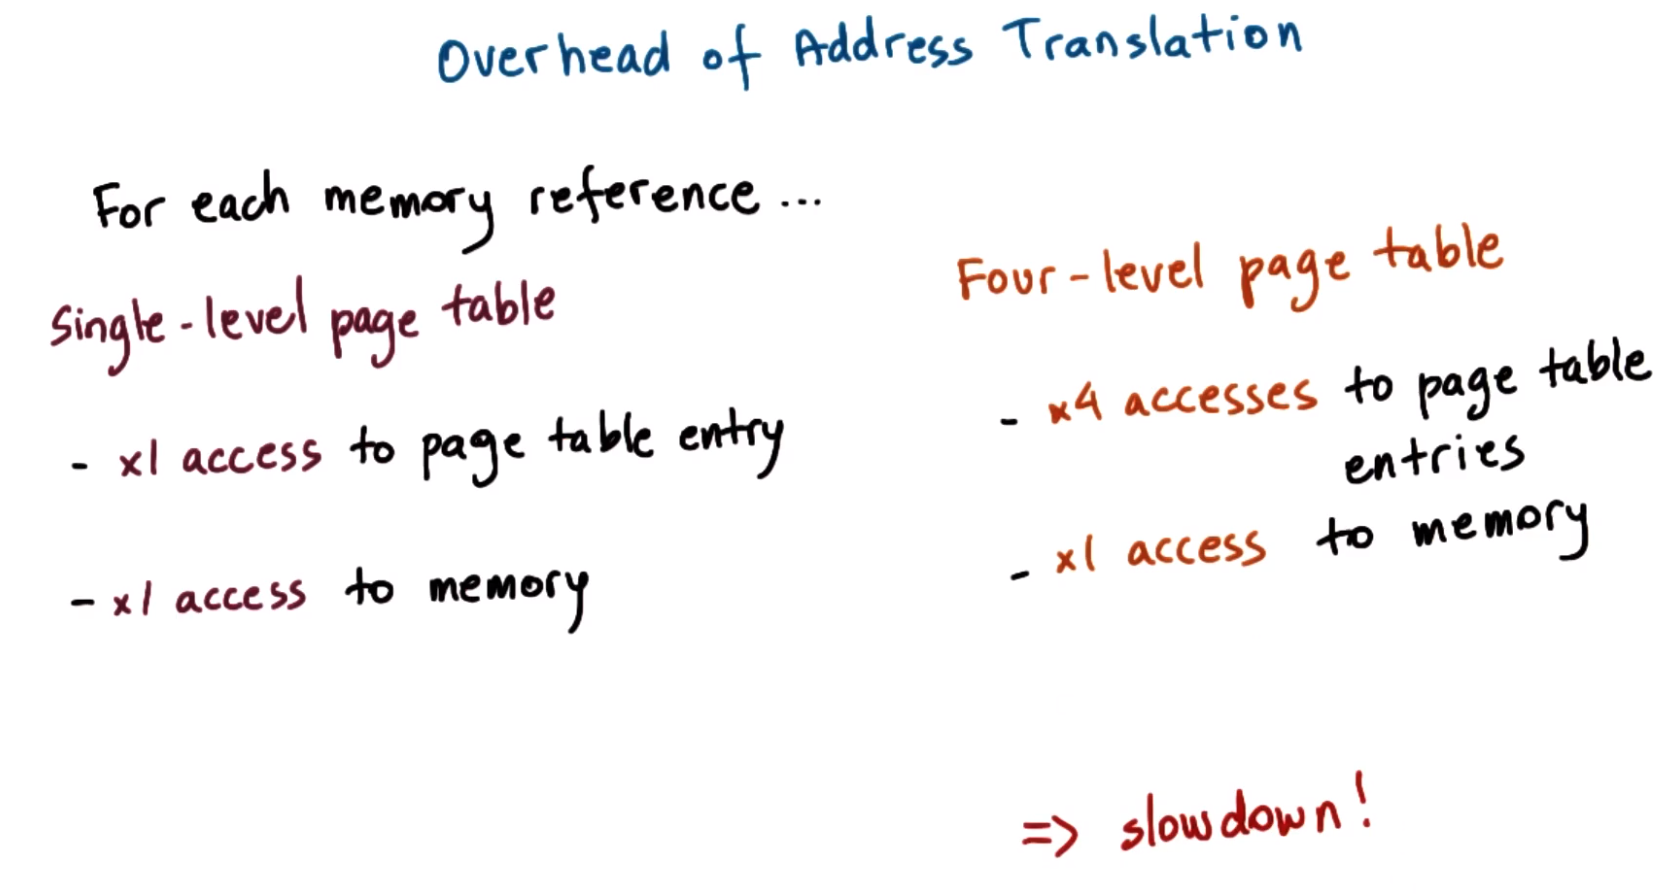 Overhead of Address Translation
For each memory reference...
Single-level page table
- x1 access to page table entry
- x1 access to memory
Four-level page table
- x4 accesses to page table
entries
- x1 access to memory
=> slowdown!